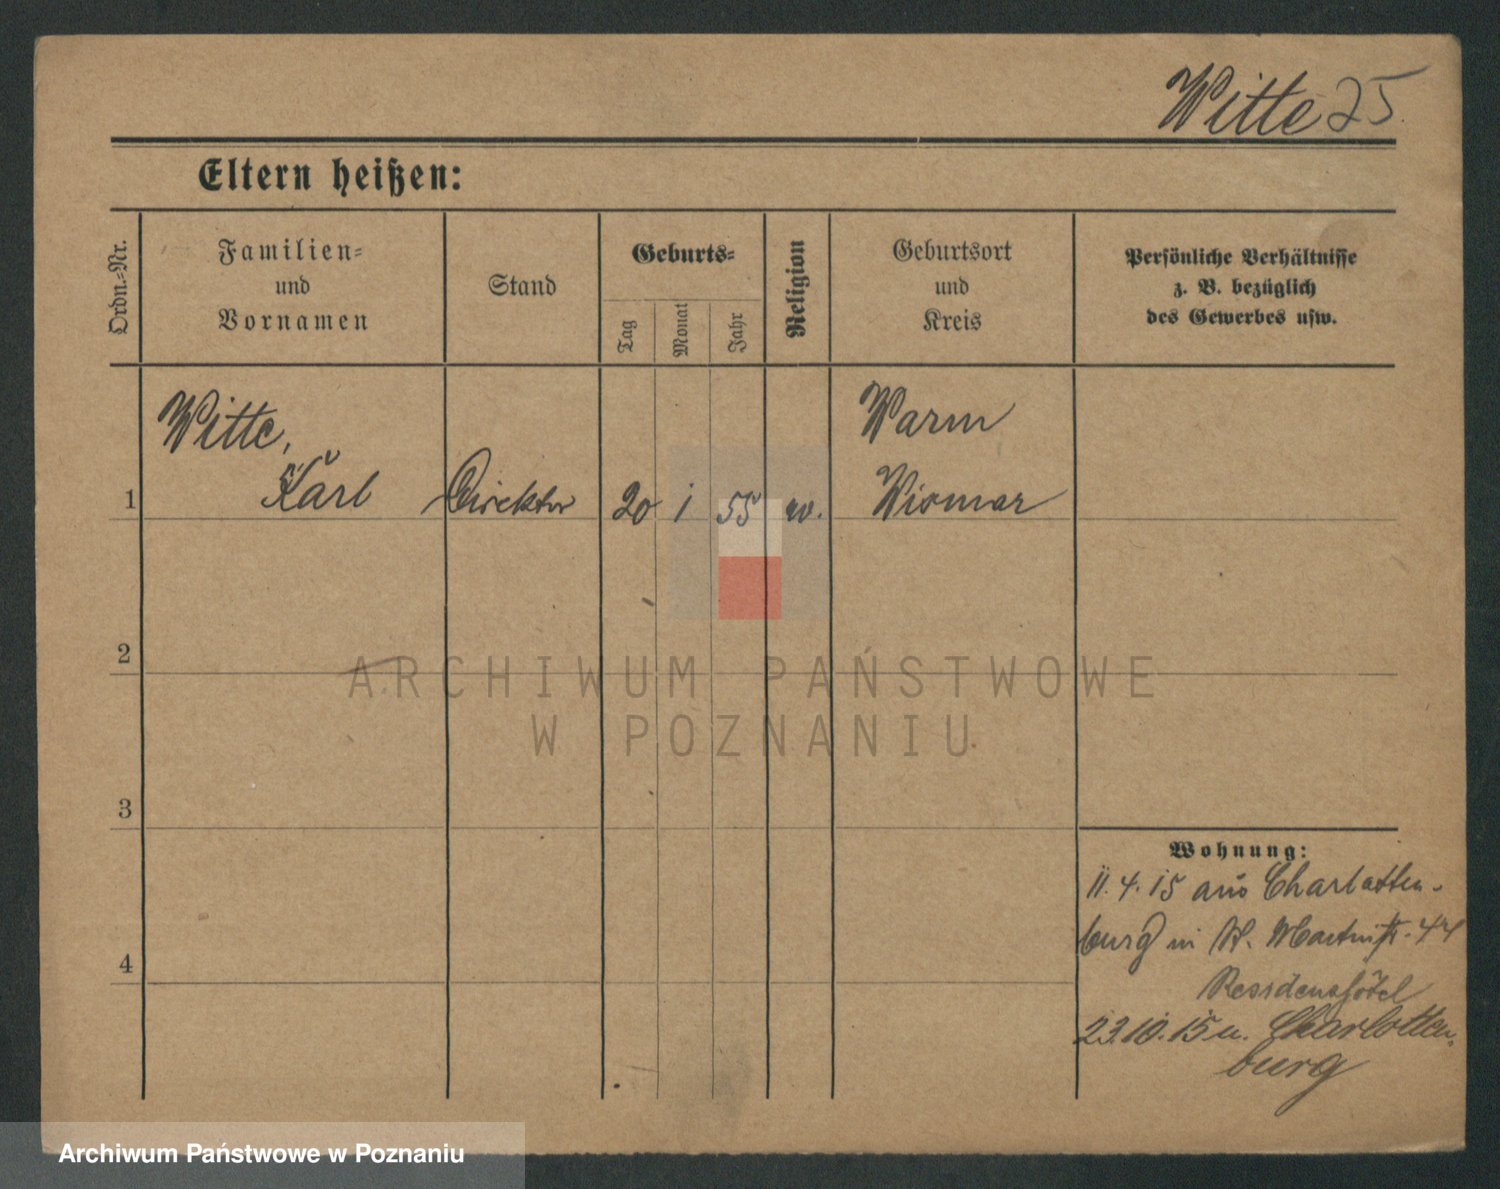 Witte 25.
Eltern heißen:
Ordn.-Nr.
Familien-
und
Vornamen
Stand
Geburts-
Tag
Monat
Jahr
Religion
Geburtsort
und
Kreis
Persönliche Verhältnisse
z. B. bezüglich
des Gewerbes usw.
Witte,
Karl
Warm
1
Direktor
20
1
55
Wismar
2
3
4
ARCHIWUM PAŃSTWOWE
W POZNANIU
Wohnung:
11.4.15 aus Charlotten-
burg in W. Martinstr. 44
Residenzhotel
23.10.15 n. Charlotten-
burg
Archiwum Państwowe w Poznaniu